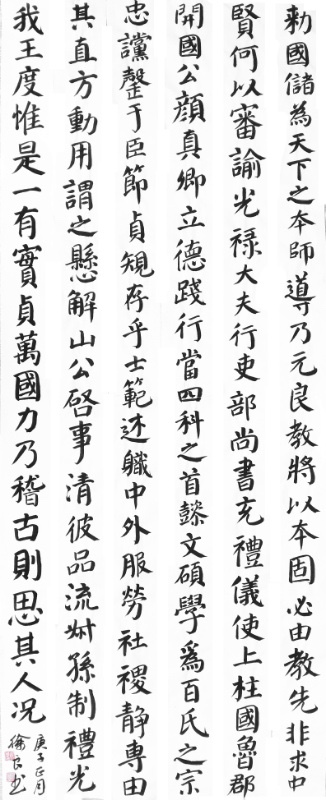 勅國儲為天下之本師導乃元良教將以本固必由教先非求中
賢何以審諭光禄大夫行吏部尚書充禮儀使上柱國魯郡
開國公顔真卿立德踐行當四科之首懿文碩學爲百氏之宗
忠讜罄于臣節貞規存乎士範述職中外服勞社稷静專由
其直方動用謂之懸解山公啓事清彼品流叔孫制禮光
我王度惟是一有實貞萬國力乃稽古則思其人況
庚子正月
徐良书